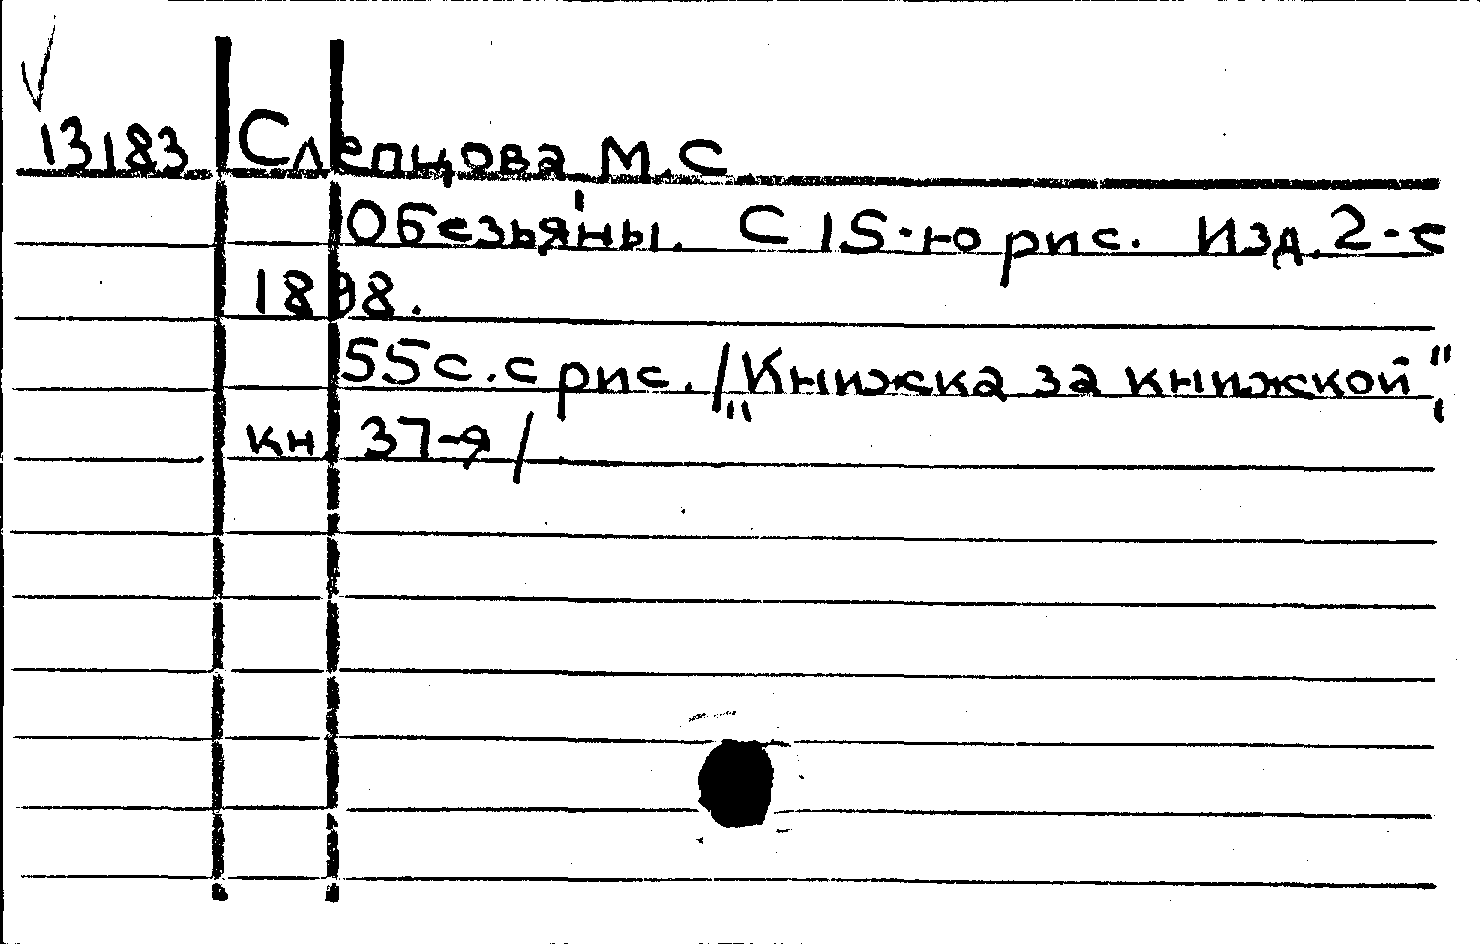 13183 Слепцова М.С.
Обезьяны. С 15-ю рис. Изд. 2-е
1898.
55 с. с рис. /"Книжка за книжкой",
кн. 37-я/